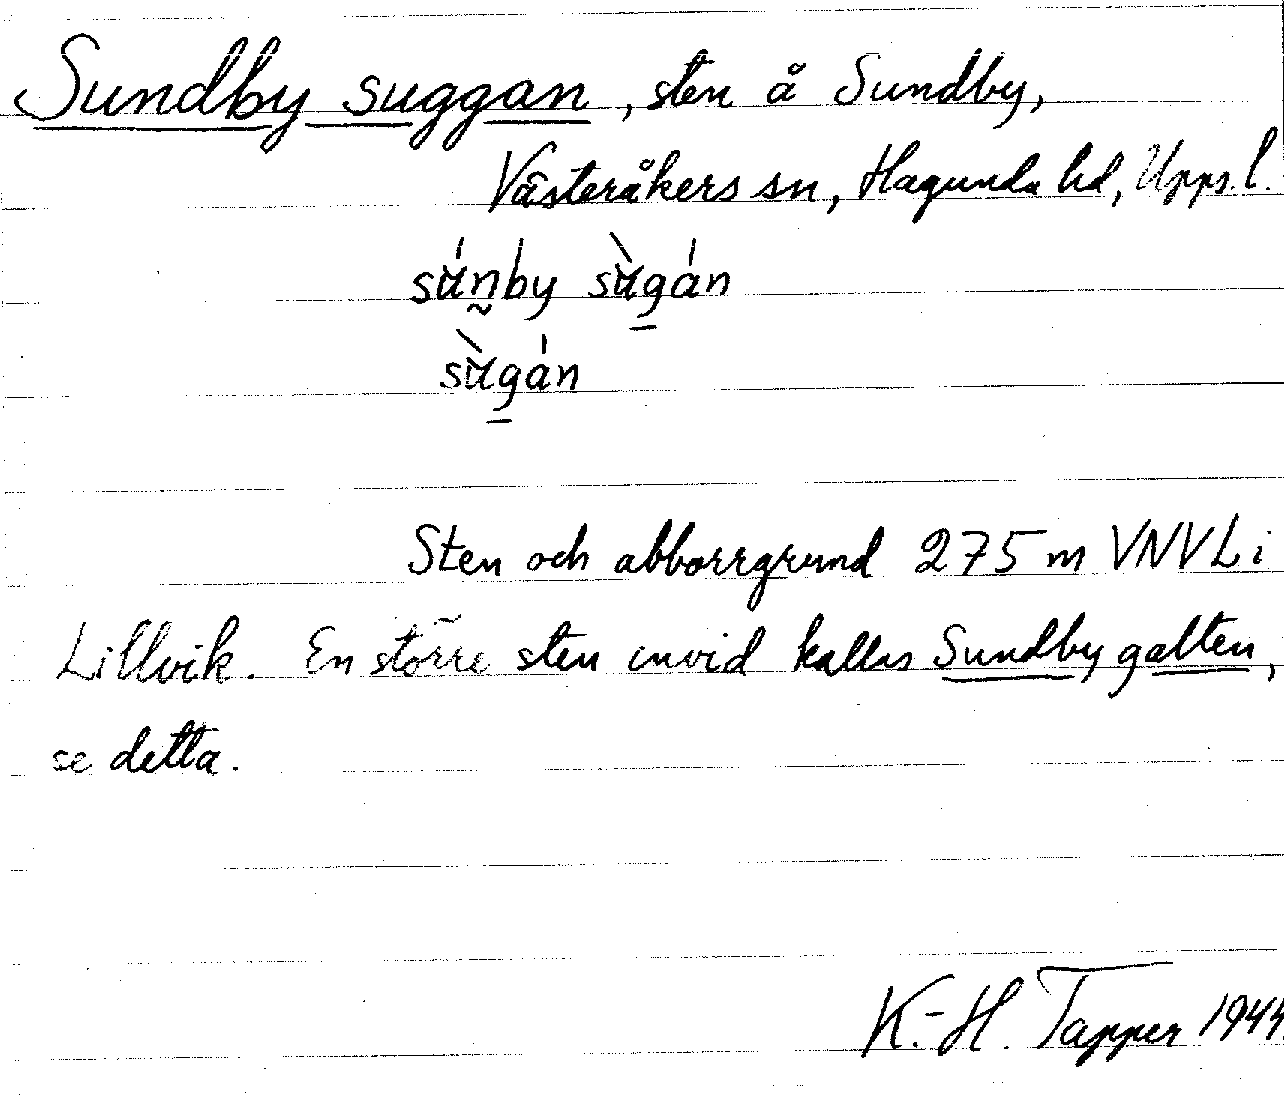 Sundby suggan, sten å Sundby,
Västeråkers sn, Hagunda hd, Upps. l.
súnby sùgán
sùgán
Sten och abborrgrund 275 m VNV L i
Lillvik. En större sten invid kallas Sundby galten,
se detta.
K.-H. Tapper 1944